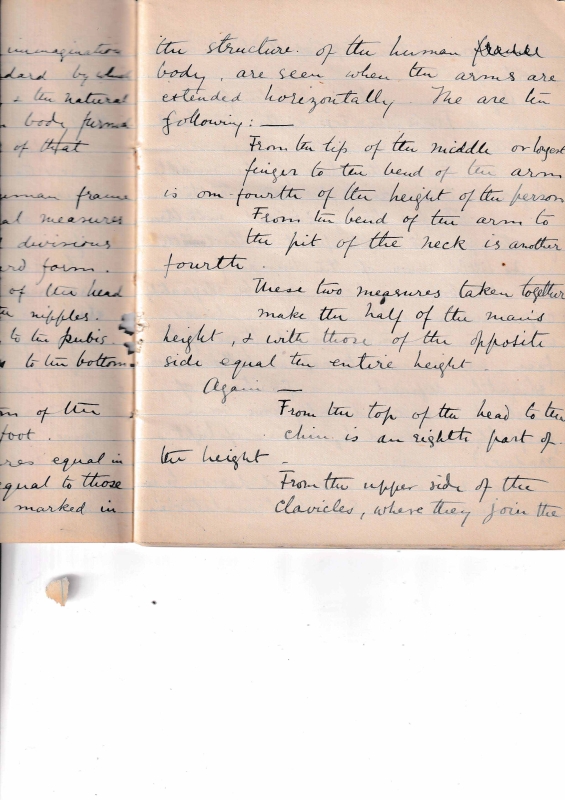 immagination
dard by
& the natural
body forms
of that
uman frame
al measures
divisions
ard form.
of the head
nipples.
to the pubis.
to the bottom
of the
foot.
res equal in
equal to those
marked in
the structure. of the human
body, are seen when the arms are
extended horizontally The are the
following: —
From the tip of the middle or longest
finger to the bend of the arm
is one-fourth of the height of the person
From the bend of the arm to
the pit of the neck is another
fourth.
These two measures taken together
make the half of the man's
height, & with those of the opposite
side equal the entire height.
Again —
From the top of the head to the
chin is an eighth part of
the height —
From the upper side of the
clavicles, where they join the